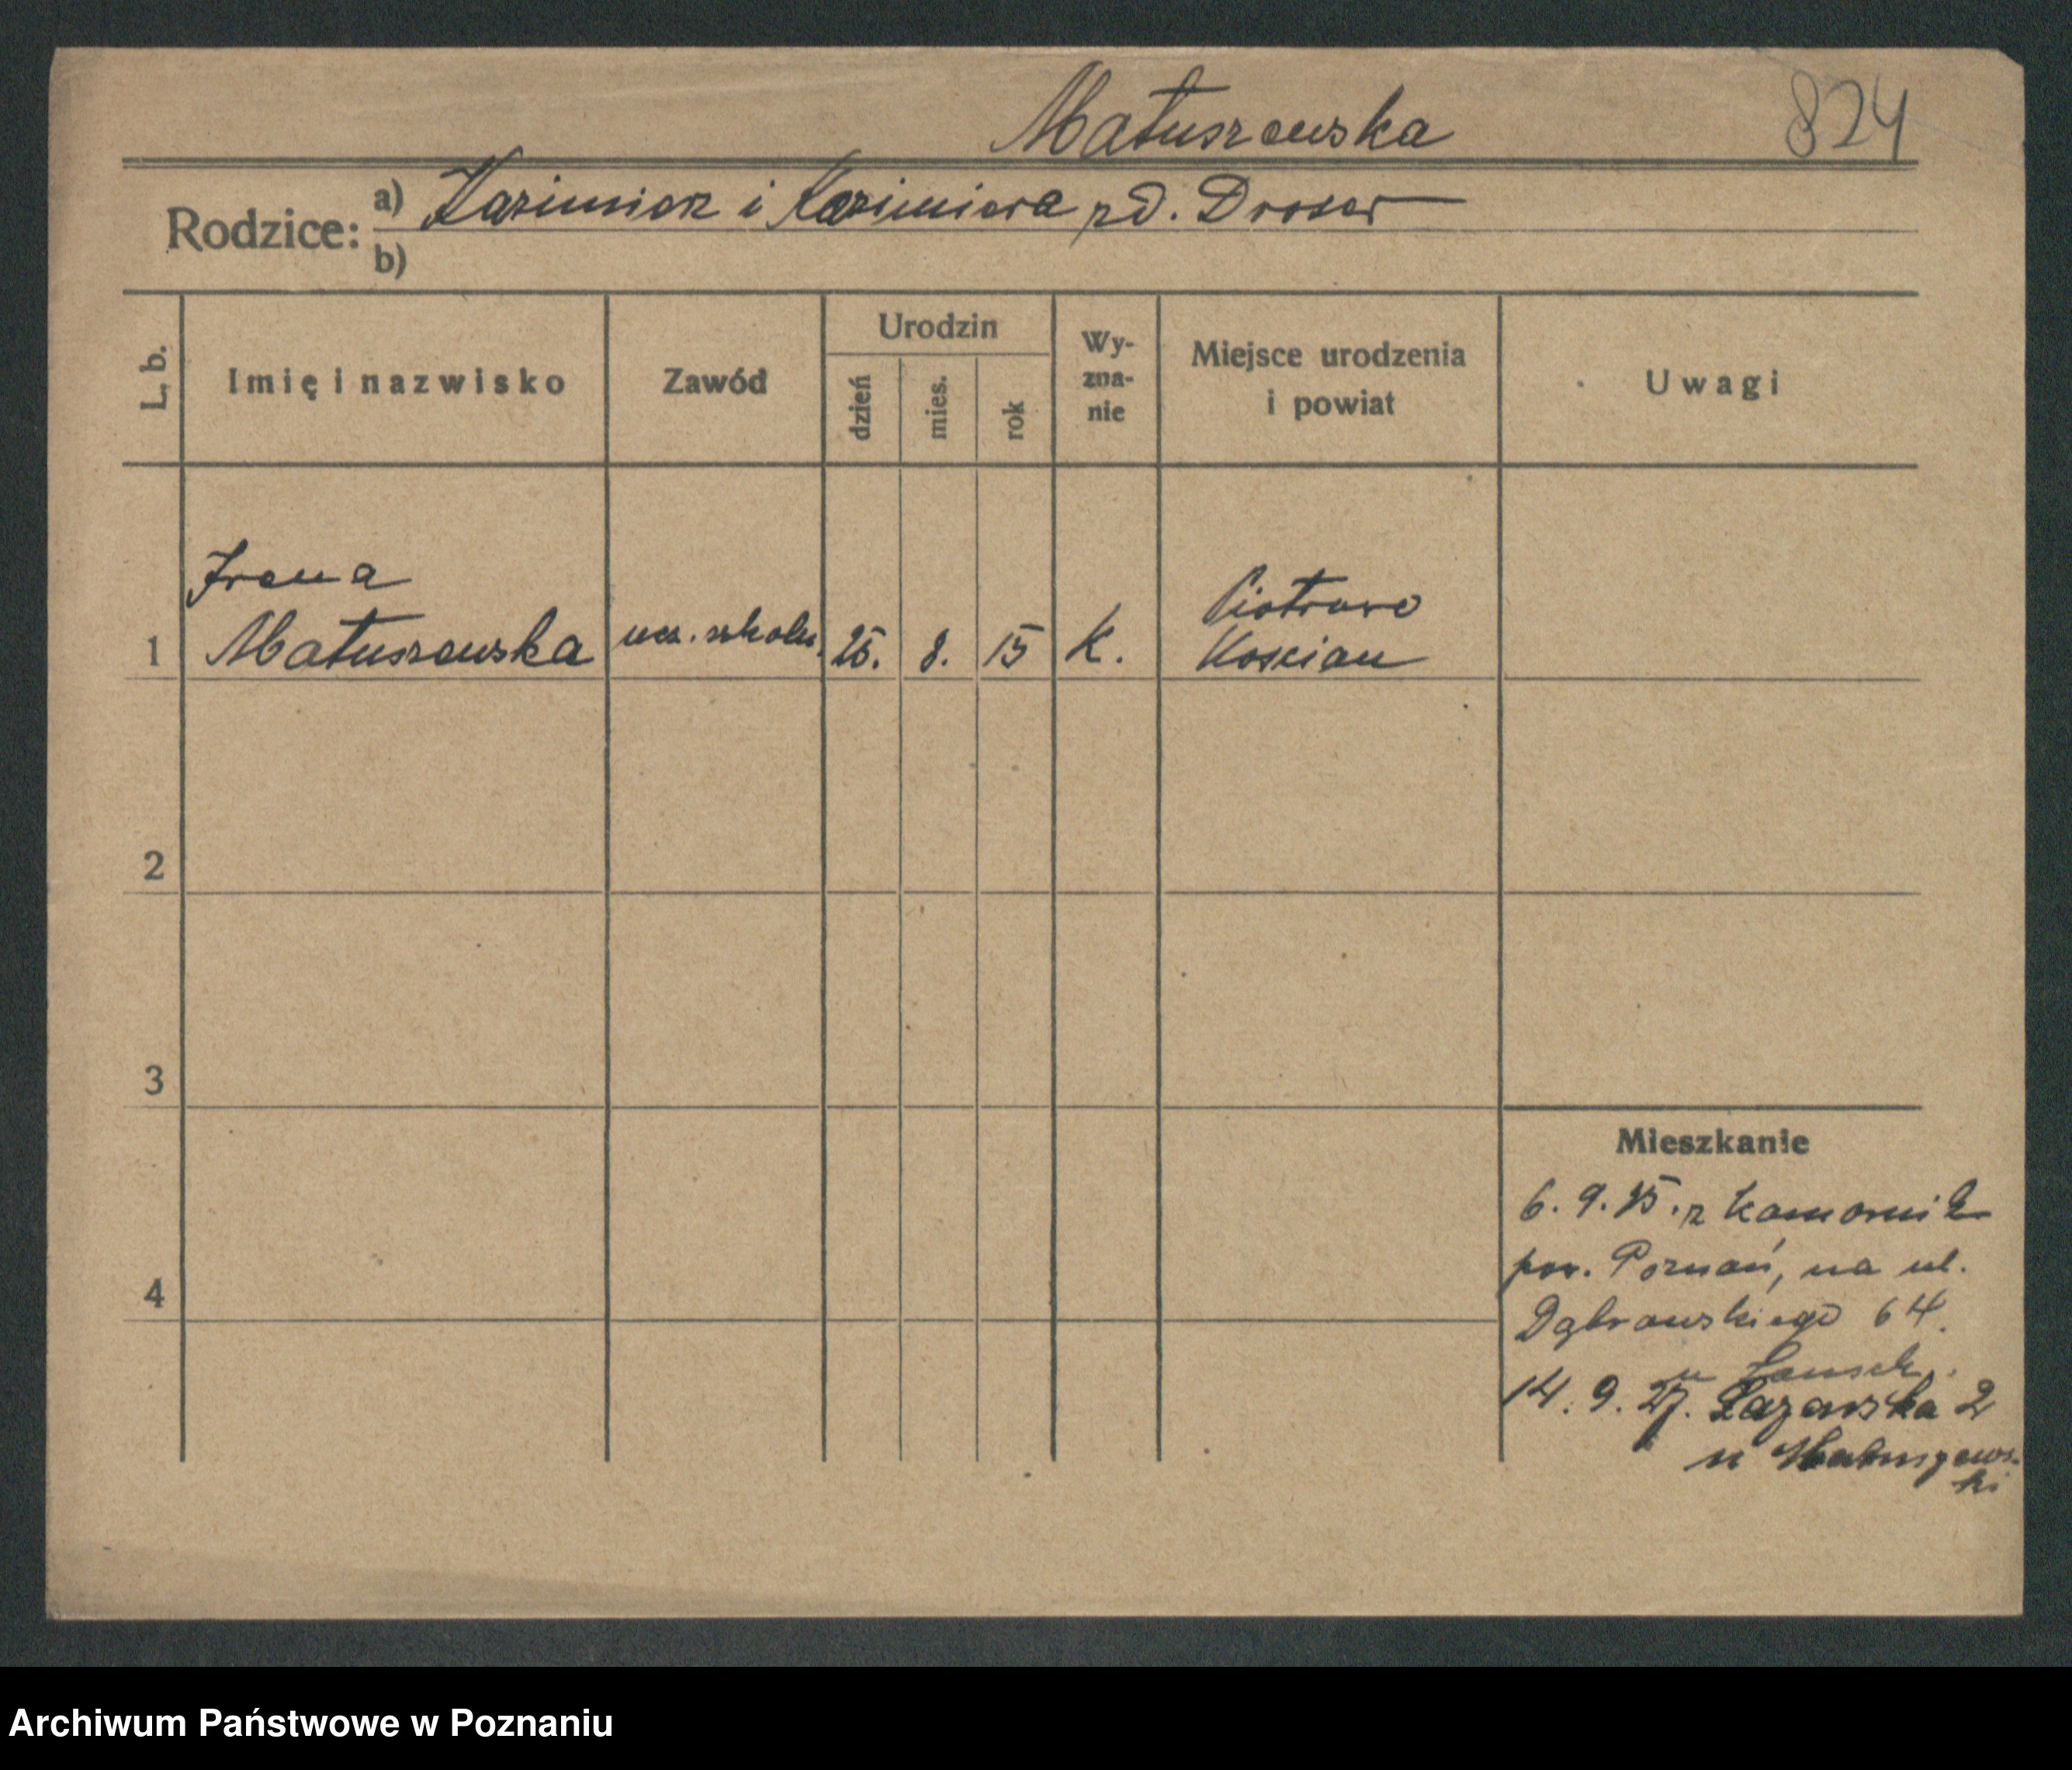 Matuszewska 824
Rodzice: a) Kazimierz i Kazimiera zd. Droser
b)
L. b. Imię i nazwisko Zawód Urodzin dzień mies. rok Wy-zna-nie Miejsce urodzenia i powiat Uwagi
Irena Piotrowo
1 Matuszewska ucz. szkoln. 25. 8. 15 k. Kościan
2
3
Mieszkanie
6. 9. 25. z Komornik
4 pow. Poznań, na ul.
Dąbrowskiego 64.
u
14. 9. 27. Łazarska 2
u Matuszews-
ki
Archiwum Państwowe w Poznaniu